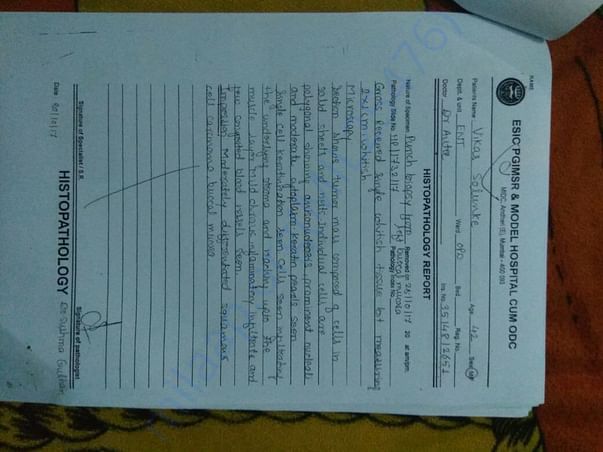 RAMS
ESIC-PGIMSR & MODEL HOSPITAL CUM ODC
MIDC, Andheri (E), Mumbai - 400 093
Patients Name Vikas Solunke Age 42 Sex M/F
Dept. & unit ENT Ward OPD Bed Reg. No.
Doctor Ins. No.
HISTOPATHOLOGY REPORT
Nature of Specimen Punch biopsy from left buccal mucosa Removed on 25/10/17 20 at am/pm
Pathology Slide No. Pathology Index No.
Gross Received single whitish tissue bit measuring
2x1cm whitish
Microscopy
Section shows tumor mass composed of cells in
solid sheets and nests. Individual cells are
polygonal showing anisonucleosis prominent nucleoli
and moderate cytoplasm keratin pearls seen
single cell keratinization seen. Cells seen infiltrating
the underlying stroma and reaching upto the
muscle layer. Mild chronic inflammatory infiltrate and
few congested blood vessels seen
Impression Moderately differentiated squamous
cell carcinoma buccal mucosa
Signature of Specialist / S.R. Signature of pathologist
HISTOPATHOLOGY
Date 30/10/17